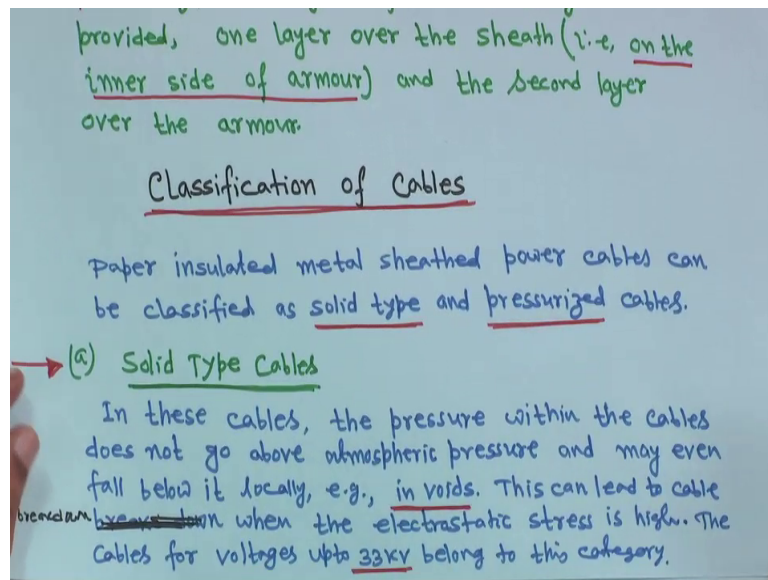 provided, one layer over the sheath (i.e, on the
inner side of armour) and the second layer
over the armour.
Classification of Cables
Paper insulated metal sheathed power cables can
be classified as solid type and pressurized cables.
(a) Solid Type Cables
In these cables, the pressure within the cables
does not go above atmospheric pressure and may even
fall below it locally, e.g., in voids. This can lead to cable
breakdown when the electrostatic stress is high. The
Cables for voltages upto 33KV belong to this category.